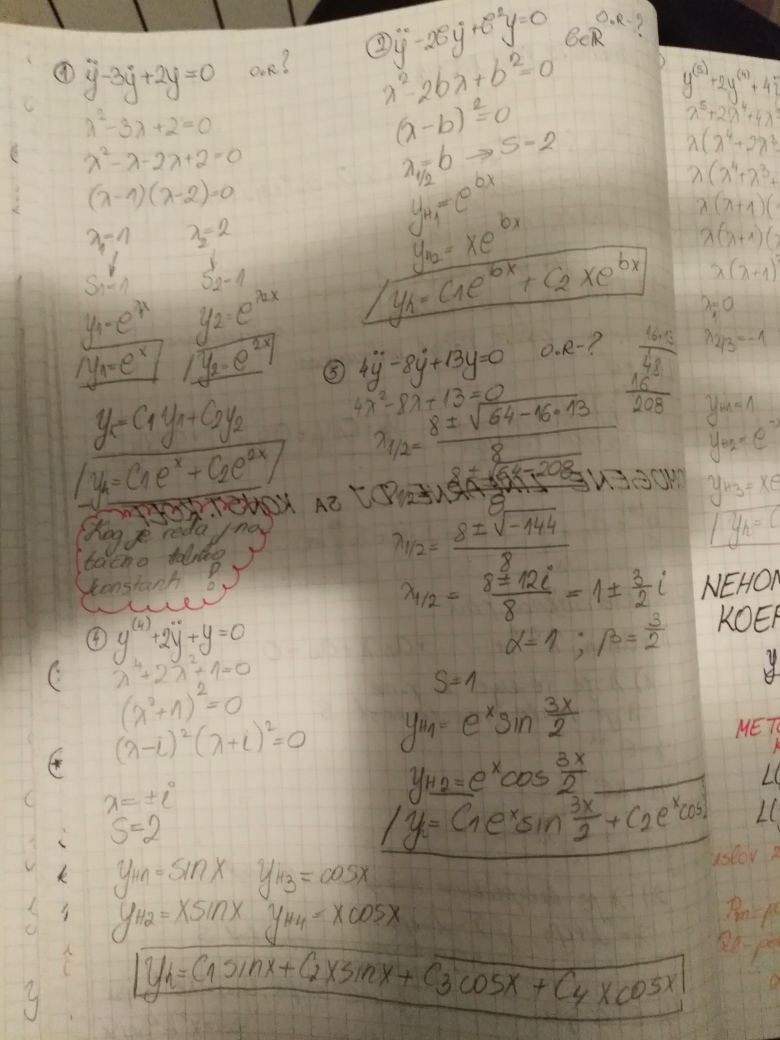 ① ÿ-3ẏ+2y=0 O.R?
λ²-3λ+2=0
λ²-λ-2λ+2=0
(λ-1)(λ-2)=0
λ₁=1 λ₂=2
S₁=1 S₂=1
y₁=e^λx y₂=e^λ2x
y₁=e^x y₂=e^2x
yₕ=C₁y₁+C₂y₂
yₕ=C₁e^x+C₂e^2x
Kog je reda, na
tačno toliko
konstanti
② ÿ-2bẏ+b²y=0 b∈R O.R-?
λ²-2bλ+b²=0
(λ-b)²=0
λ1/2=b → S=2
yH1=e^bx
yH2=xe^bx
yh=C1e^bx+C2xe^bx
③ 4ÿ-8ẏ+13y=0 O.R-?
16·13
48
16
208
4λ²-8λ+13=0
λ1/2=8±√64-16·13
8
8±√64-208
8
λ1/2=8±√-144
8
λ1/2=8±12i/8=1±3/2i
α=1 ; β=3/2
S=1
yH1=e^x sin 3x/2
yH2=e^x cos 3x/2
yh=C1e^x sin 3x/2+C2e^x cos
④ y^(4)+2ÿ+y=0
λ⁴+2λ²+1=0
(λ²+1)²=0
(λ-i)²(λ+i)²=0
λ=±i
S=2
yH1=sinx yH3=cosx
yH2=xsinx yH4=xcosx
yh=C1sinx+C2xsinx+C3cosx+C4xcosx
y^(5)+2y^(4)+4
λ⁵+2λ⁴+4λ³
λ(λ⁴+2λ³
λ(λ⁴+λ³+
λ(λ+1)(
λ(λ+1)(
λ(λ+1)
λ₁=0
λ2/3=-1
yH1=1
yH2=e
yH3=xe
NEHOM
KOEF
y
METO
K
L(
L(
uslov